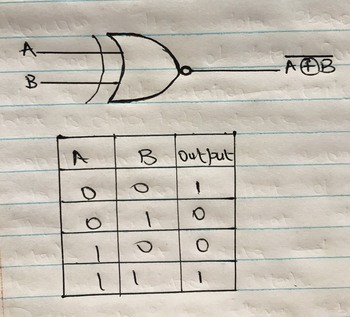 A
B
A⊕B̅
A B Output
0 0 1
0 1 0
1 0 0
1 1 1